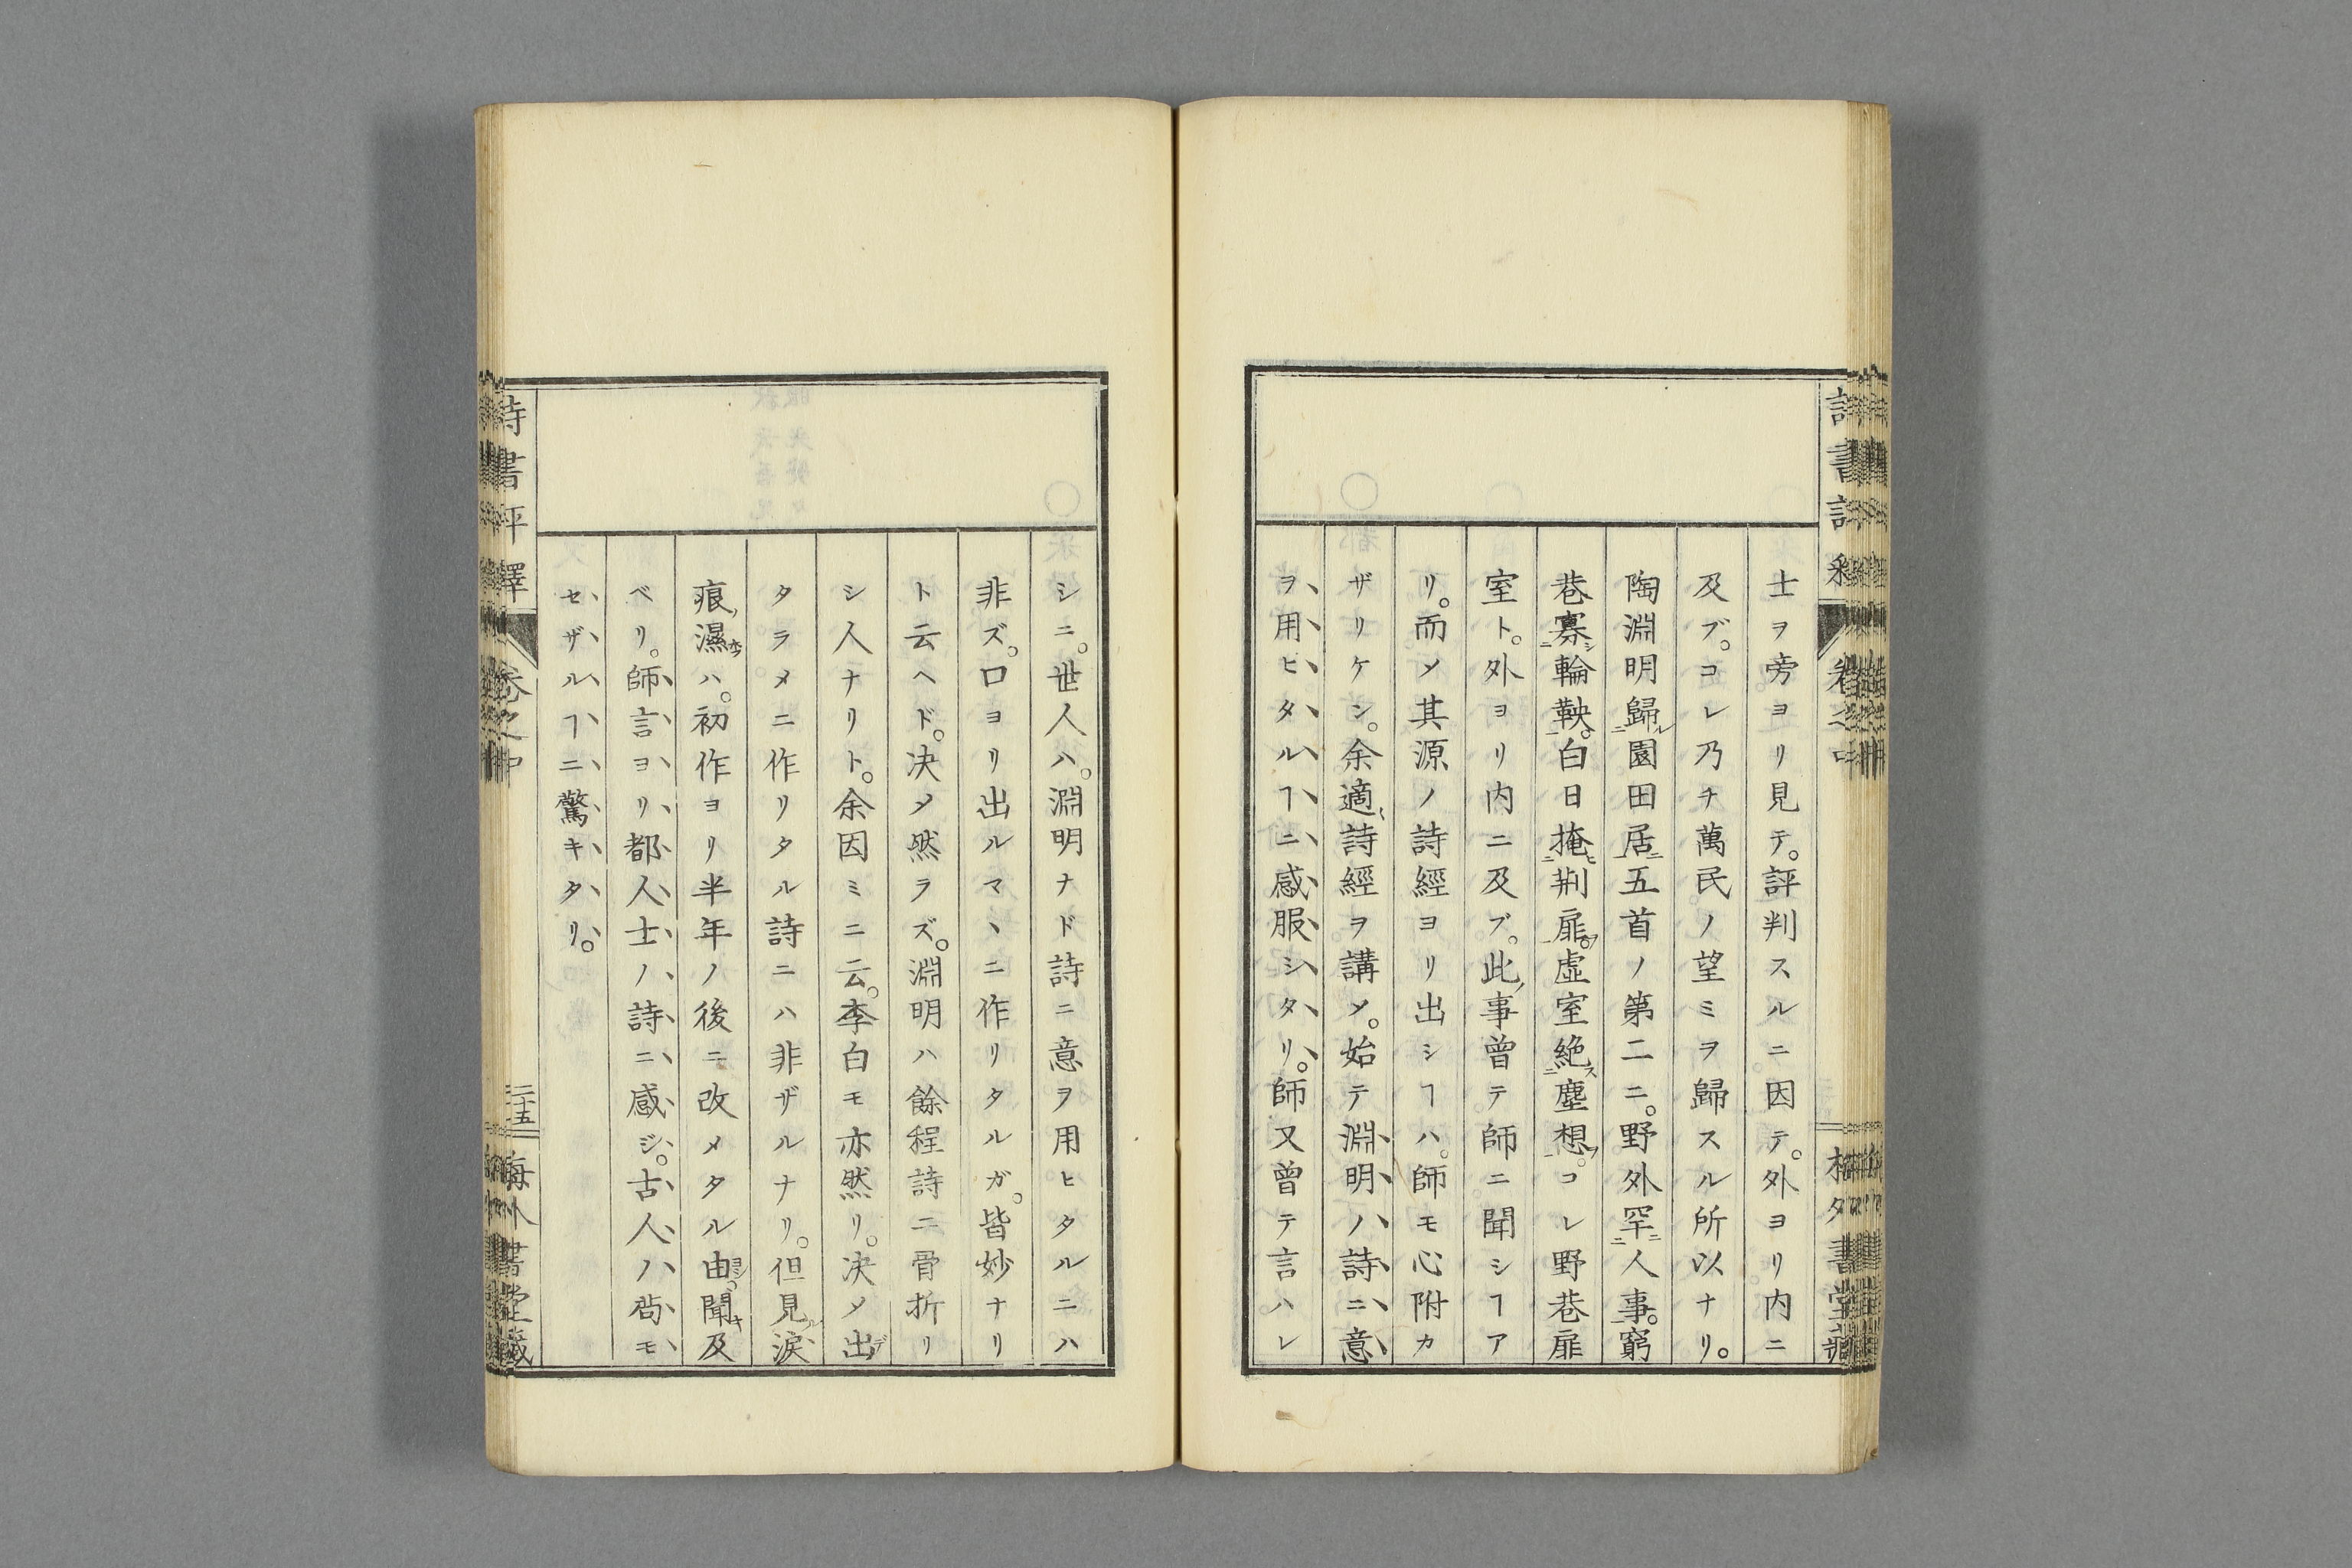 士ヲ旁ヨリ見テ。評判スルニ因テ。外ヨリ内ニ
及ブ。コレ乃チ萬民ノ望ミヲ歸スル所以ナリ。
陶淵明歸ル二園田居ニ一五首ノ第二ニ。野外罕ニ二人事一。窮
巷寡シ二輪鞅一。白日掩ヒ二荆扉ヲ一。虛室絶ス二塵想ヲ一。コレ野巷扉
室ト。外ヨリ内ニ及ブ。此ノ事曾テ師ニ聞シヿア
リ。而シテ其源ノ詩經ヨリ出シヿハ。師モ心附カ
ザリケン。余適〻詩經ヲ講メ。始テ淵明ノ詩ニ意
ヲ用ヒタルヿニ感服シタリ。師又曾テ言ハレ
シニ。世人ハ。淵明ナド詩ニ意ヲ用ヒタルニハ
非ズ。口ヨリ出ルマヽニ作リタルガ。皆妙ナリ
ト云ヘド。决メ然ラズ。淵明ハ餘程詩ニ骨折リ
シ人ナリト。余因ミニ云。李白モ亦然リ。决メ出デ
タラメニ作リタル詩ニハ非ザルナリ。但見ル淚
痕ノ濕ホフハ。初作ヨリ半年ノ後ニ改メタル由ヨシ。聞キ及
ベリ。師言ヨリ都人士ノ詩ニ感ジ。古人ハ苟モ
セザルヿニ驚キタリ。
詩書評釋
卷之中
二十五
書堂藏